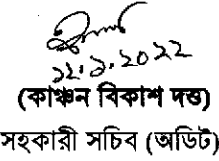 ১২.১.২০২২
(কাঞ্চন বিকাশ দত্ত)
সহকারী সচিব (অডিট)